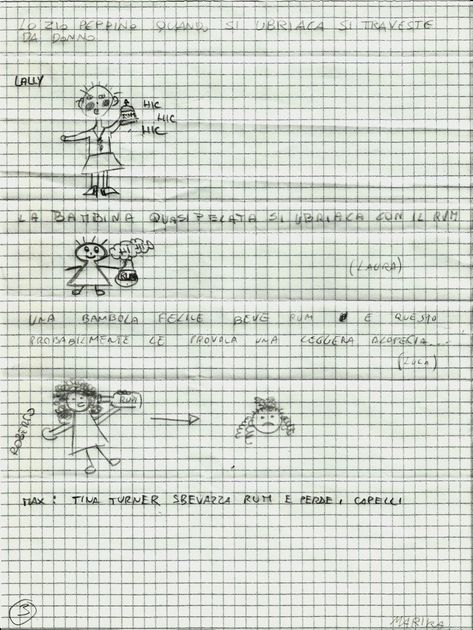 LO ZIO PEPPINO QUANDO SI UBRIACA SI TRAVESTE
DA DONNO
LALLY
HIC
HIC
HIC
RUM
LA BAMBINA QUASI PELATA SI UBRIACA CON IL RUM
RUM
(LAURA)
UNA BAMBOLA FELICE BEVE RUM E QUESTO
PROBABILMENTE LE PROVOLA UNA LEGGERA ALOPECIA...
(LUCA)
ROBERTO
RUM
MAX: TINA TURNER SBEVAZZA RUM E PERDE I CAPELLI
3
MARIKA